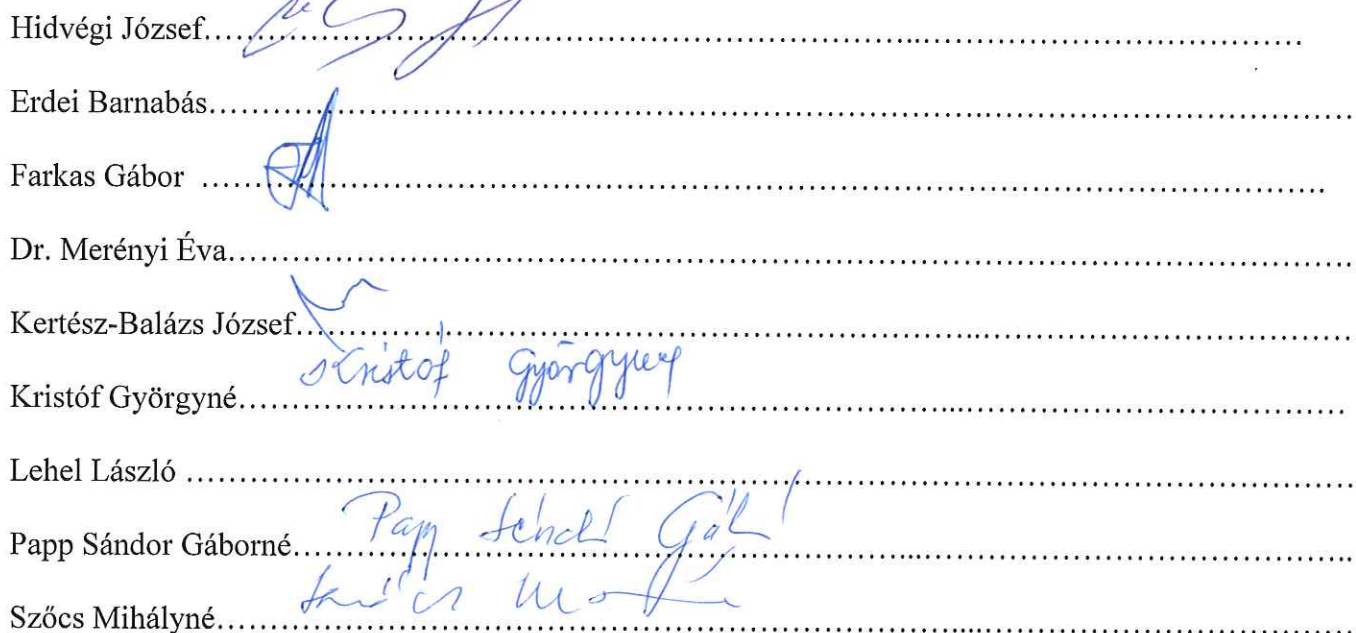 Hidvégi József……………………………………………………………………
Erdei Barnabás……………………………………………………………………
Farkas Gábor ……………………………………………………………………
Dr. Merényi Éva……………………………………………………………………
Kertész-Balázs József……………………………………………………………………
Kristóf Györgyné
Kristóf Györgyné……………………………………………………………………
Lehel László ……………………………………………………………………
Papp Sándor Gáborné……………………………………………………………………
Szőcs Mihályné……………………………………………………………………